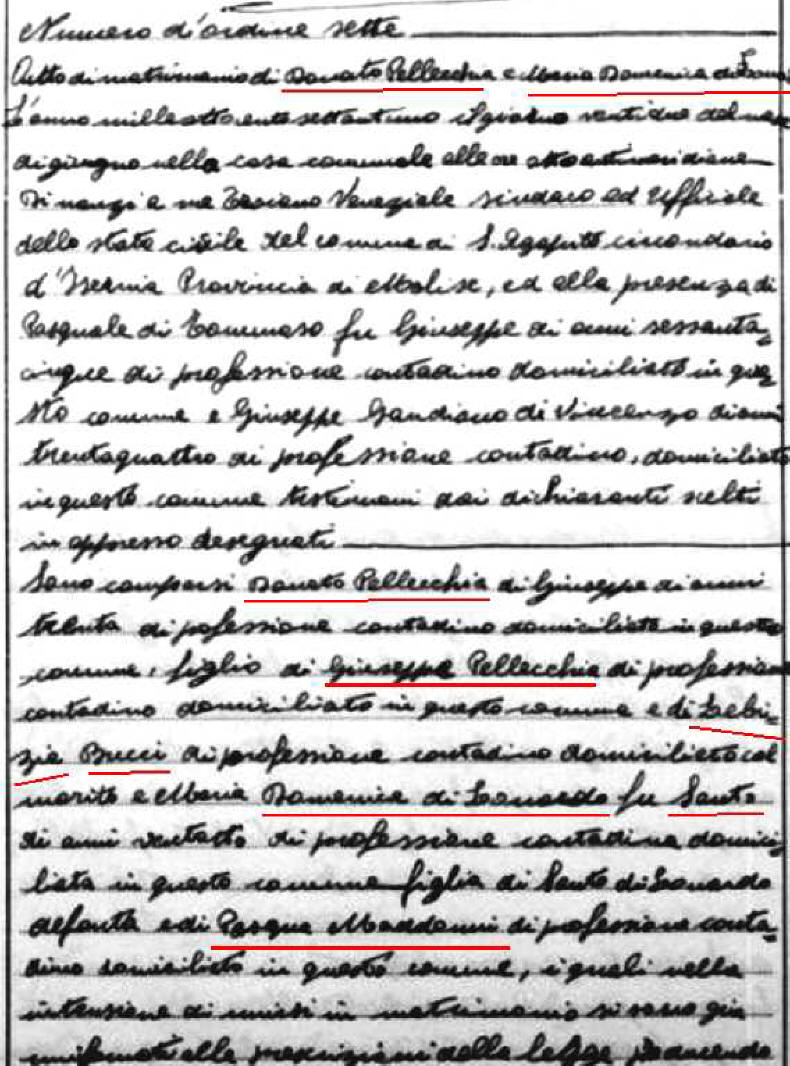 Numero d'ordine sette
Atto di matrimonio di Donato Pellecchia e Maria Domenica di
L'anno milleottocento settantuno il giorno ventidue del mese
di giugno nella casa comunale alle ore otto antimeridiane
Dinanzi a me Veneziale sindaco ed Uffiziale
dello stato civile del comune di S. Agapito circondario
d'Isernia Provincia di Molise, ed alla presenza di
Pasquale di Tommaso fu Giuseppe di anni sessanta
cinque di professione contadino domiciliato in que
sto comune e Giuseppe Gandiano di Vincenzo di anni
trentaquattro di professione contadino, domiciliato
in questo comune testimoni dai dichiaranti scelti
in appresso designati
Sono comparsi Donato Pellecchia di Giuseppe di anni
trenta di pofessione contadino domiciliato in questo
comune, figlio di Giuseppe Pellecchia di professione
contadino domiciliato in questo comune e di Lebi-
zia Bucci di professione contadino domiciliato col
marito e Maria Domenica di Leonardo fu Santo
di anni ventotto di professione contadina domici
liata in questo comune figlia di Santo di Leonardo
defonto e di Pasqua Maddonni di professione conta
dino domiciliato in questo comune, i quali nella
intensione di unirsi in matrimonio si sono già
uniformati alle prescrizioni della legge producendo